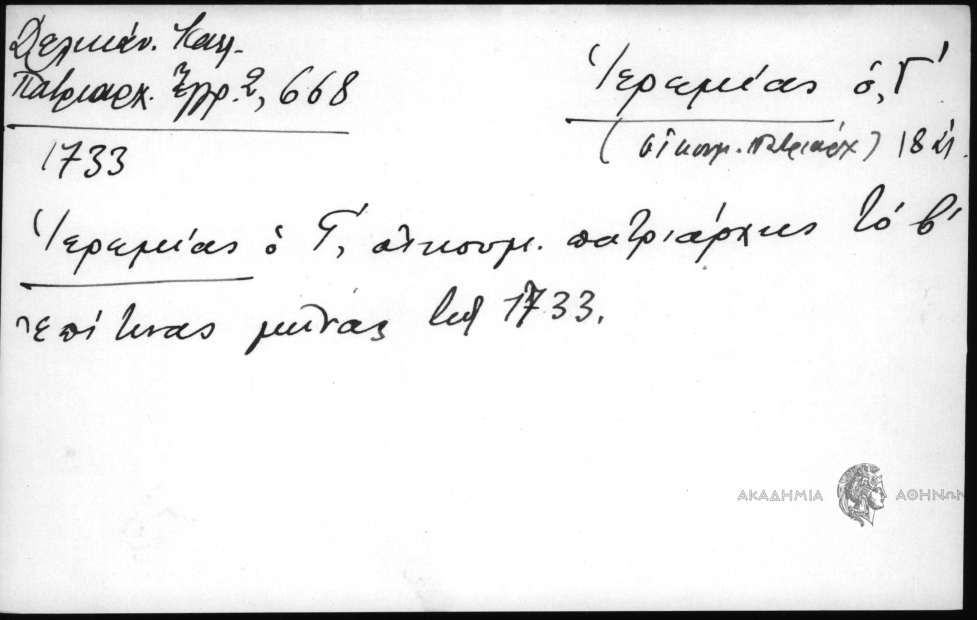 Δελικάν. Καλ.
Πατριαρχ. Ἔγγρ. 2, 668
1733
Ἱερεμίας ὁ, Γ'
(οἰκουμ. πατριάρχ)
Ἱερεμίας ὁ Γ', οἰκουμ. πατριάρχης τὸ β'
ἐπί τινας μῆνας τοῦ 1733.
ΑΚΑΔΗΜΙΑ ΑΘΗΝΩΝ